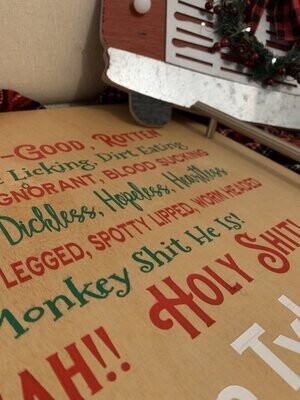 -Good, Rotten
Licking, Dirt Eating
Ignorant, Blood Sucking
Dickless, Hopeless, Heartless
Legged, Spotty Lipped, Worm Headed
Monkey Shit He Is!
Holy Shit!
AH!!